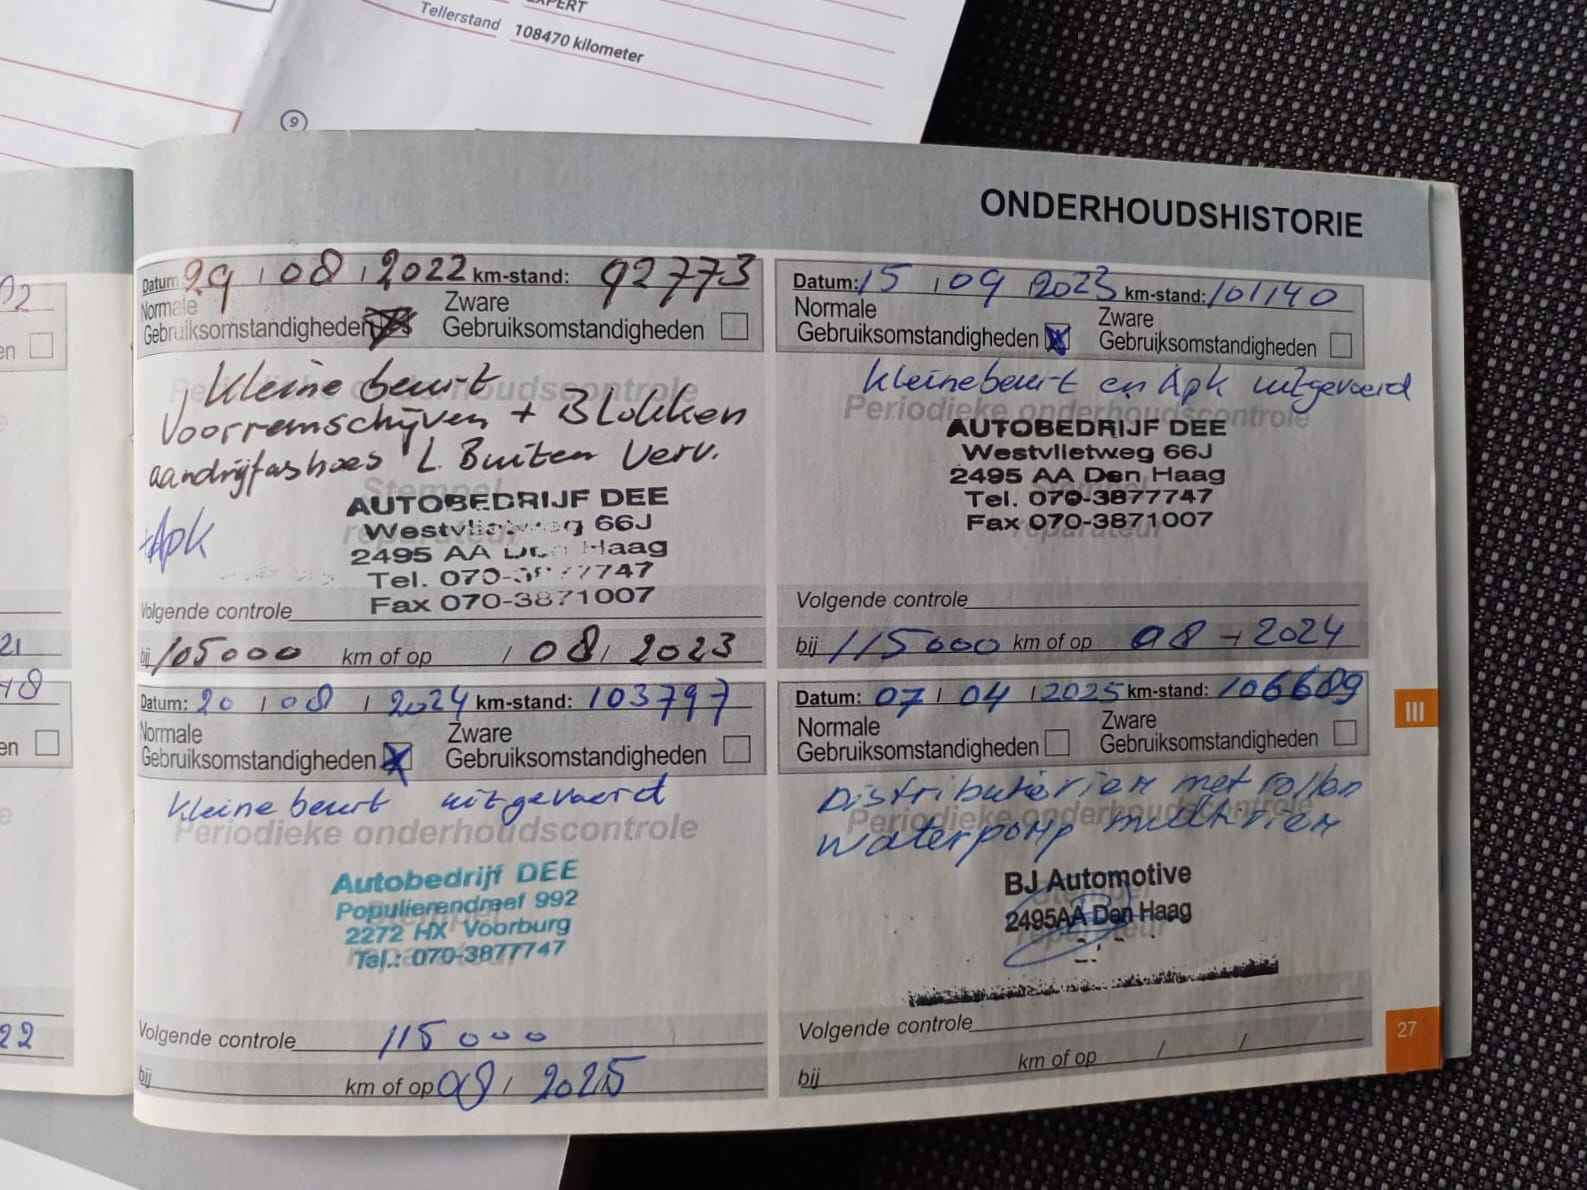 EXPERT
Tellerstand 108470 kilometer
9
ONDERHOUDSHISTORIE
Datum: 29 / 08 / 2022 km-stand: 92773
Normale
Gebruiksomstandigheden
Zware
Gebruiksomstandigheden
Periodieke onderhoudscontrole
Kleine beurt
Voorremschijven + Blokken
aandrijfashoes L. Buiten Verv.
+Apk
Stempel
reparateur
AUTOBEDRIJF DEE
Westvlietweg 66J
2495 AA Den Haag
Tel. 070-3877747
Fax 070-3871007
Volgende controle
bij 105000 km of op / 08 / 2023
Datum: 15 / 09 / 2023 km-stand: 101140
Normale
Gebruiksomstandigheden
Zware
Gebruiksomstandigheden
Kleine beurt en Apk uitgevoerd
Periodieke onderhoudscontrole
AUTOBEDRIJF DEE
Westvlietweg 66J
2495 AA Den Haag
Tel. 070-3877747
Fax 070-3871007
reparateur
Volgende controle
bij 115000 km of op 08 - 2024
Datum: 20 / 08 / 2024 km-stand: 103797
Normale
Gebruiksomstandigheden
Zware
Gebruiksomstandigheden
Kleine beurt uitgevoerd
Periodieke onderhoudscontrole
Autobedrijf DEE
Populierendreef 992
2272 HX Voorburg
Tel.: 070-3877747
Volgende controle 115000
bij km of op 08 / 2025
Datum: 07 / 04 / 2025 km-stand: 106689
Normale
Gebruiksomstandigheden
Zware
Gebruiksomstandigheden
Distributieriem met rollen
Periodieke onderhoudscontrole
Waterpomp multiriem
BJ Automotive
2495AA Den Haag
reparateur
Volgende controle
bij km of op / /
III
27
21
22